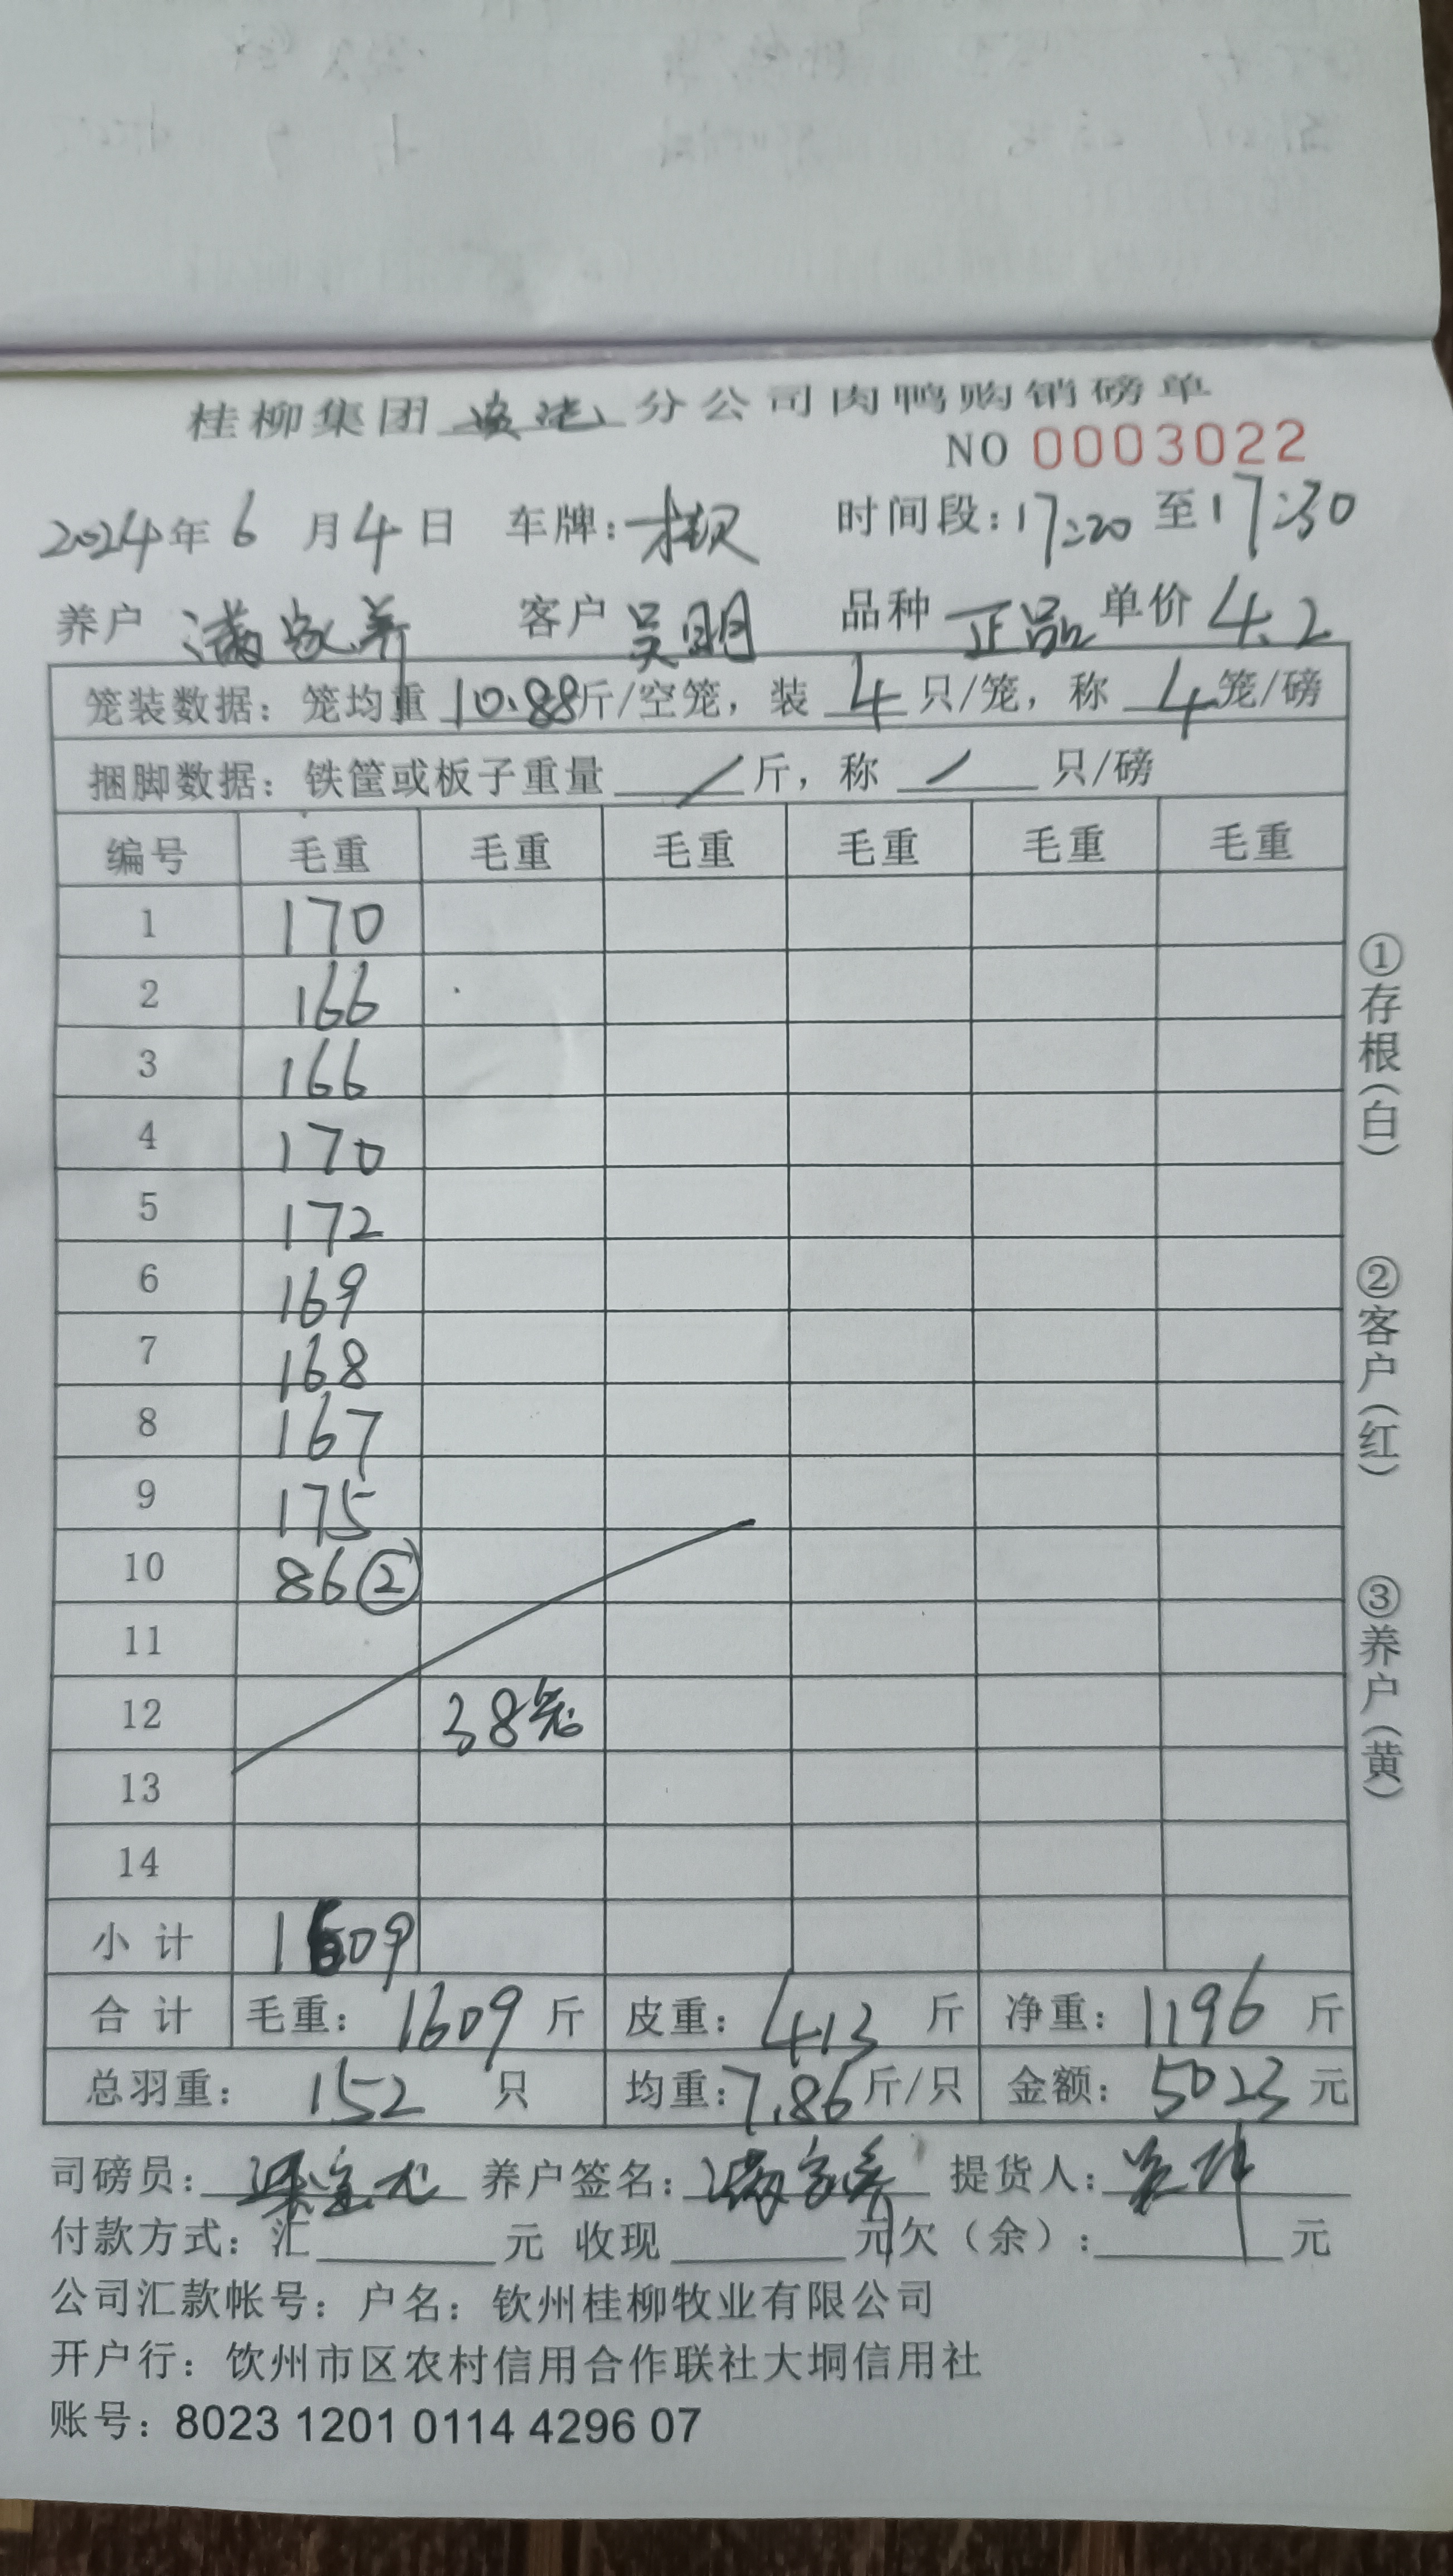 桂柳集团 分公司肉鸭购销磅单
NO 0003022
2024年 6 月 4 日 车牌: 时间段:17:20 至 17:30
养户 满家养 客户 吴明 品种 正品 单价 4.2
笼装数据: 笼均重 10.88 斤/空笼, 装 4 只/笼, 称 4 笼/磅
捆脚数据: 铁筐或板子重量 / 斤, 称 / 只/磅
编号 毛重 毛重 毛重 毛重 毛重 毛重
1 170
2 166
3 166
4 170
5 172
6 169
7 168
8 167
9 175
10 86 ②
11
12 38笼
13
14
小计 1609
合计 毛重: 1609 斤 皮重: 413 斤 净重: 1196 斤
总羽重: 152 只 均重: 7.86 斤/只 金额: 5023 元
司磅员: 养户签名: 满家养 提货人:
付款方式: 汇 元 收现 元 欠(余): 元
公司汇款帐号: 户名: 钦州桂柳牧业有限公司
开户行: 饮州市区农村信用合作联社大垌信用社
账号: 8023 1201 0114 4296 07
①存根(白)
②客户(红)
③养户(黄)